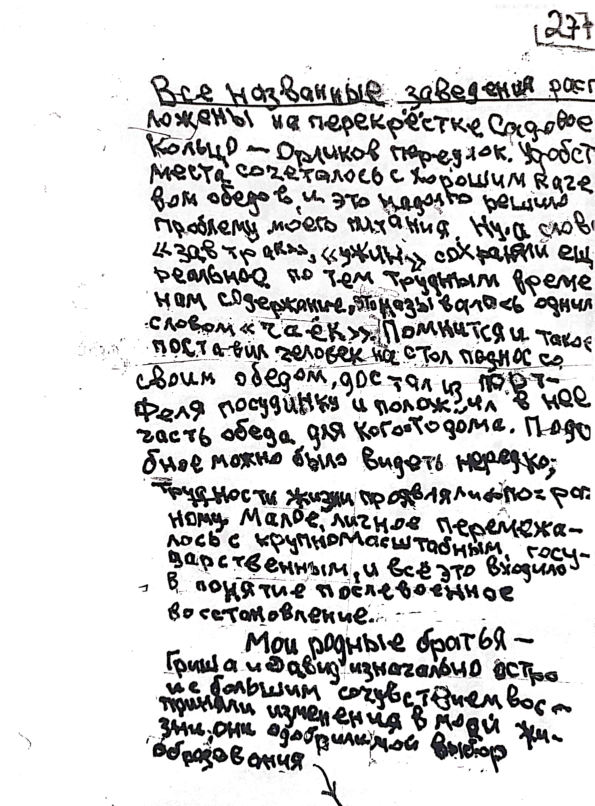 277
Все названные заведения расп
ложены на перекрёстке Садовое
Кольцо — Орликов переулок. Удобст
места сочеталось с хорошим каче
вом обедов, и это надолго решило
проблему моего питания. Ну, а слов
«завтрак», «ужин» сохраняли ещ
реальное по тем трудным време
нам содержание, это называлось одним
словом «чаёк». Помнится и такое
поставил человек на стол поднос со
своим обедом, достал из порт-
феля посудинку и положил в нее
часть обеда для кого-то дома. Подо
бное можно было видеть нередко;
трудности жизни проявлялись по-раз
ному. Малое, личное перемежа-
лось с крупномасштабным, госу-
дарственным, и всё это входило
в понятие послевоенное
восстановление.
Мои родные братья —
Гриша и Давид изначально остро
и с большим сочувствием вос-
приняли изменения в моей жи-
зни, они одобрили мой выбор
образования